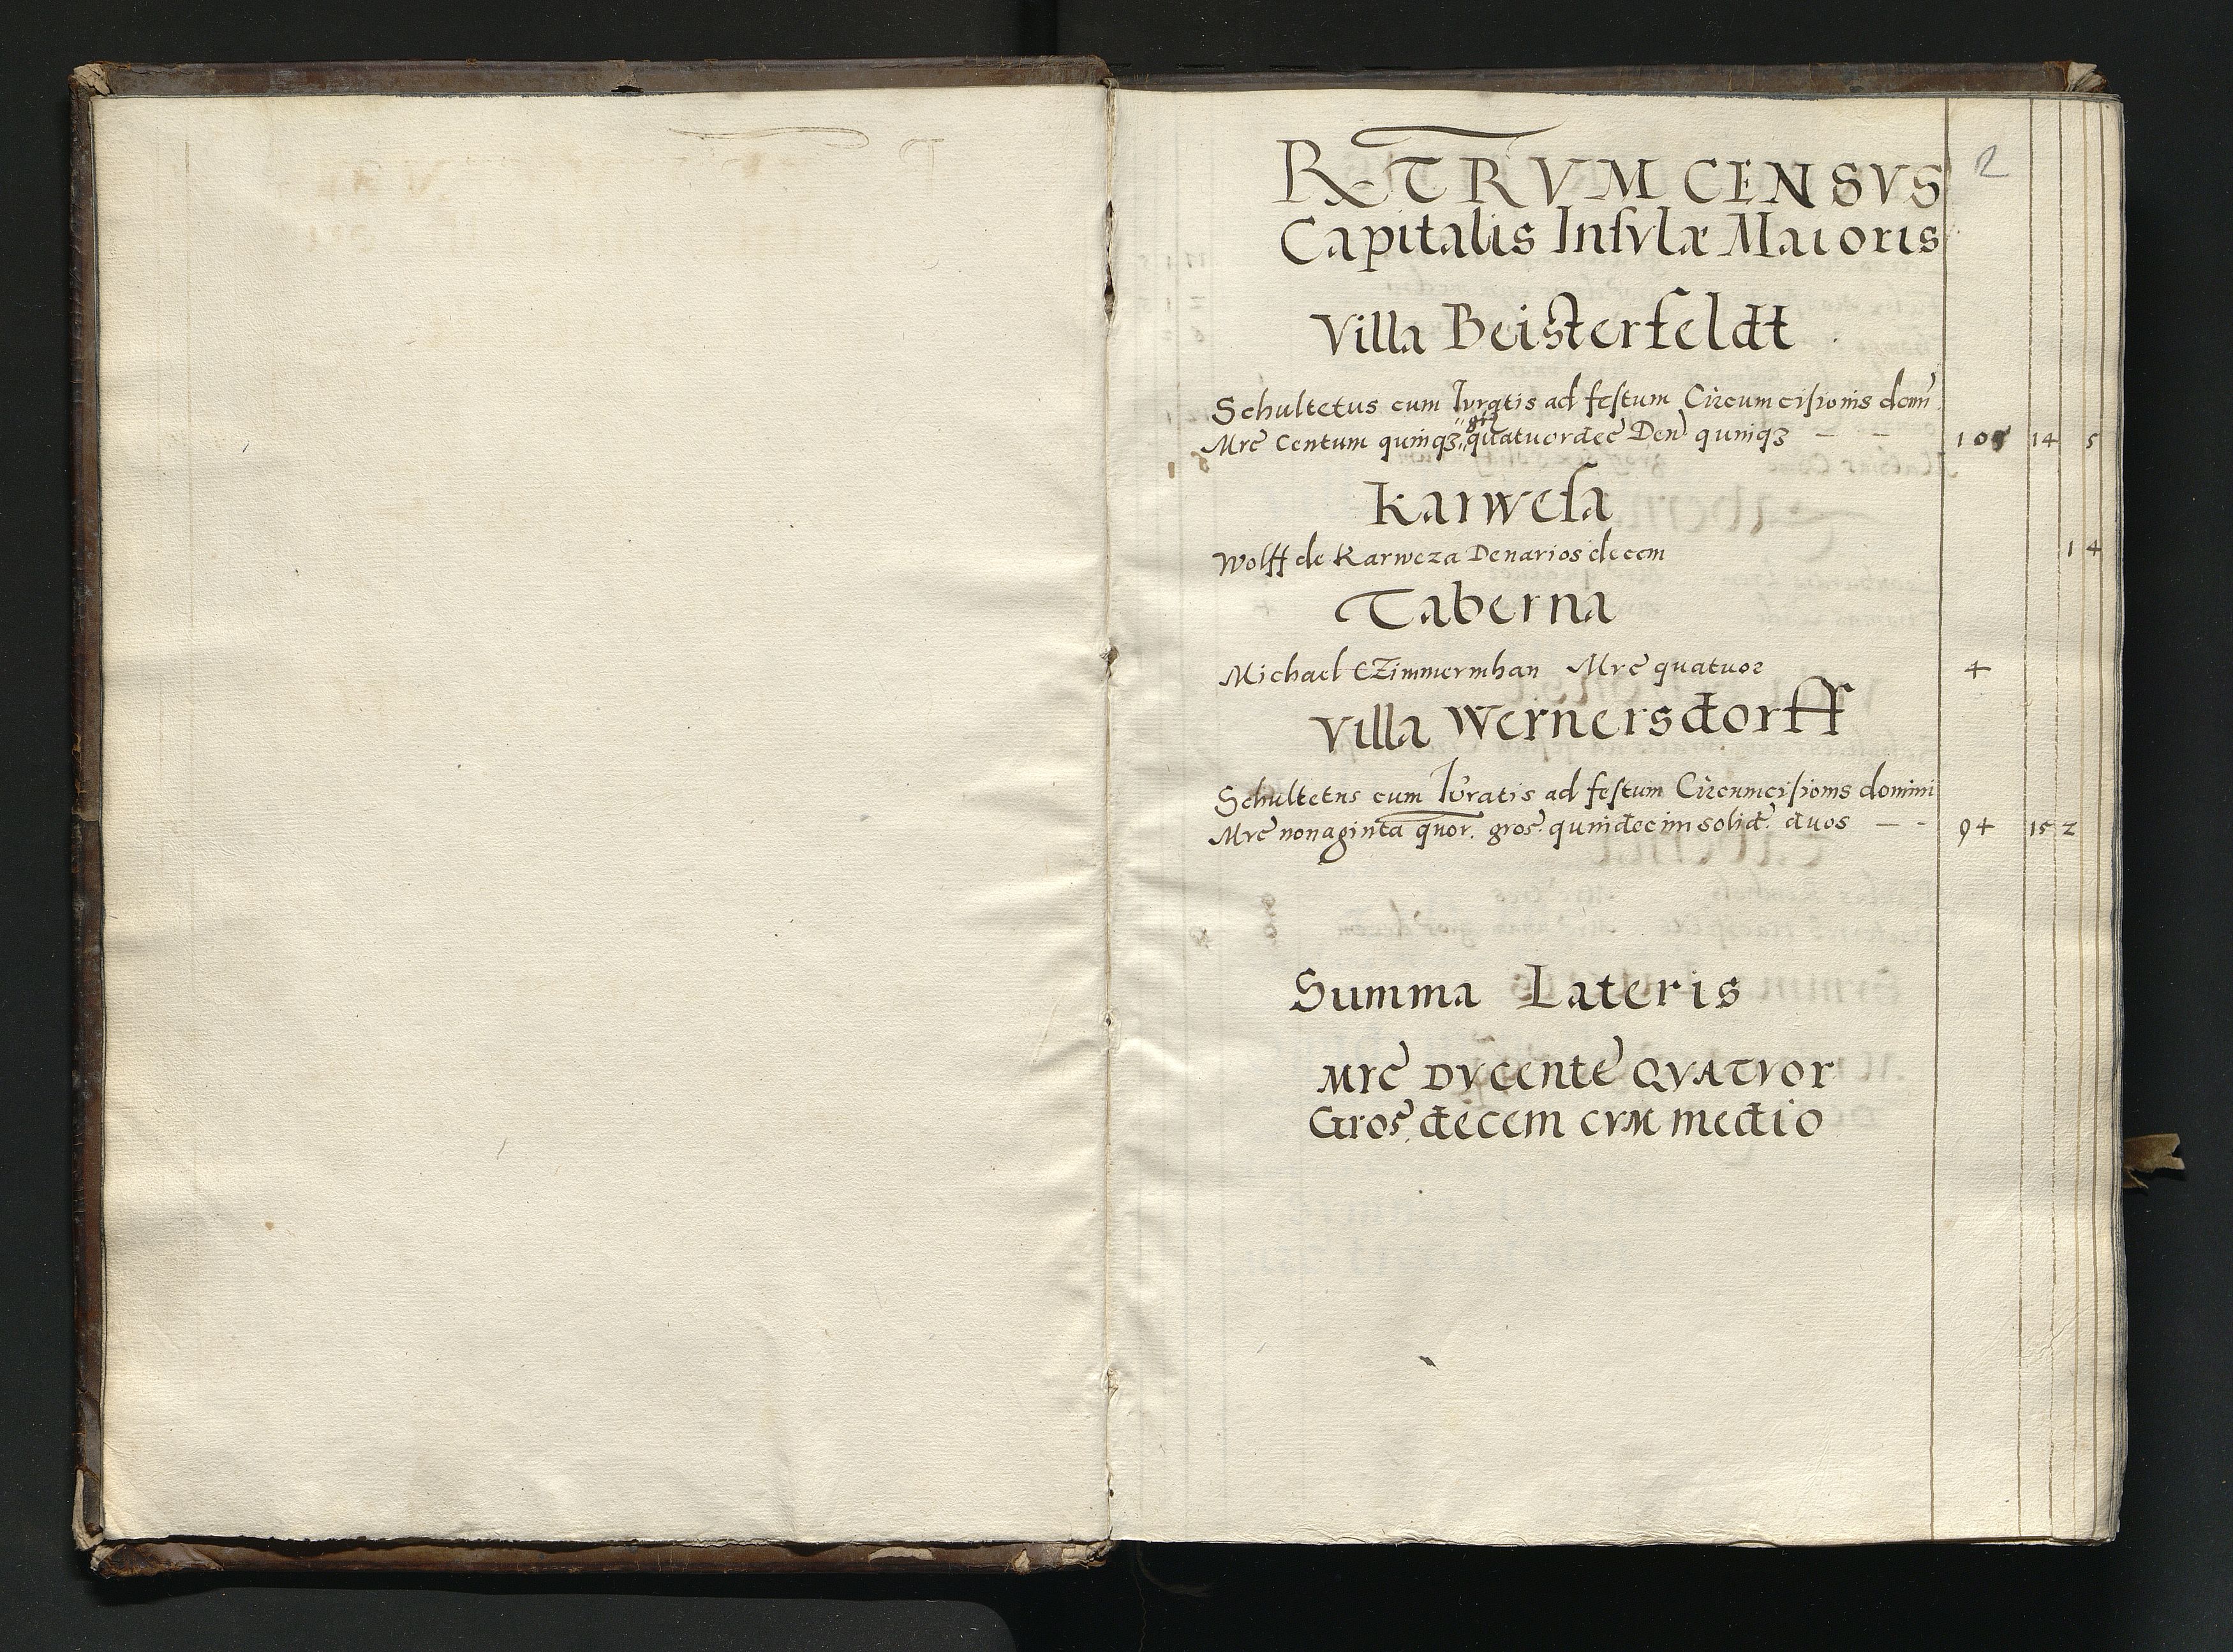 RTRVM CENSVS 2
Capitalis Insvlæ Maioris
Villa Beisterfeldt
Schultetus cum Ivratis ad festum Circumcisionis domi
gr
Mrc Centum quinqʒ quatuordec Den quinqʒ — — 105 14 5
Karwesa
Wolff de Karweza Denarios decem 1 4
Taberna
Michael CZimmermhan Mrc quatuor 4
Villa Wernersdorff
Schultetus cum Ivratis ad festum Circumcisionis domini
Mrc nonaginta quor. gros. quindecim solid. duos — - 94 15 2
Summa Lateris
Mrc DVcente QVATVor
Gros. decem cvm medio